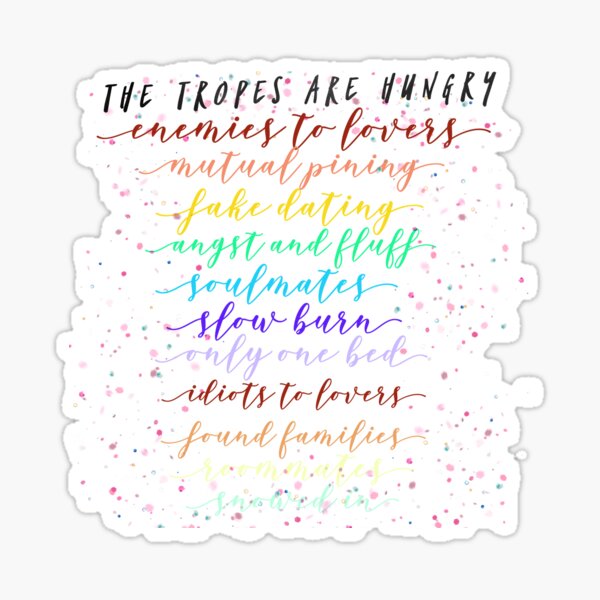 THE TROPES ARE HUNGRY
enemies to lovers
mutual pining
fake dating
angst and fluff
soulmates
slow burn
only one bed
idiots to lovers
found families
roommates
snowed in